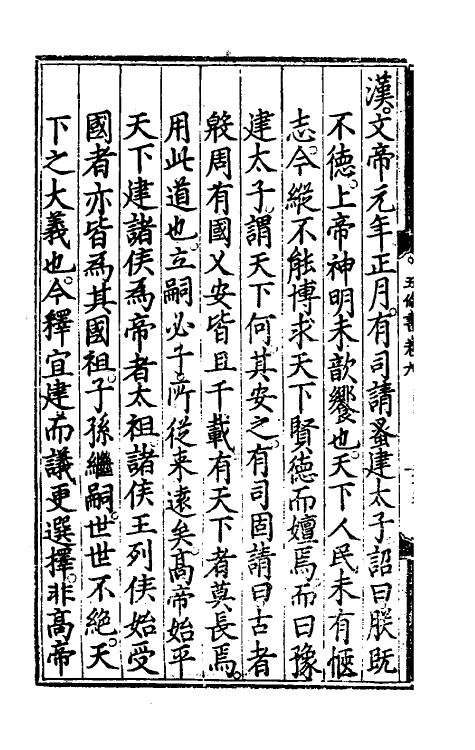 漢。文帝元年正月。有司請蚤建太子詔曰朕既
不德。上帝神明未歆饗也。天下人民未有愜
志。今縱不能博求天下賢德而嬗焉而曰豫
建太子。謂天下何。其安之。有司固請曰古者
殷周有國乂安皆且千載有天下者莫長焉。
用此道也。立嗣必子所從来遠矣。高帝始平
天下建諸侯爲帝者太祖諸侯王列侯始受
國者亦皆爲其國祖。子孫繼嗣。世世不絶。天
下之大義也。今釋宜建而議更選擇。非高帝
卷九